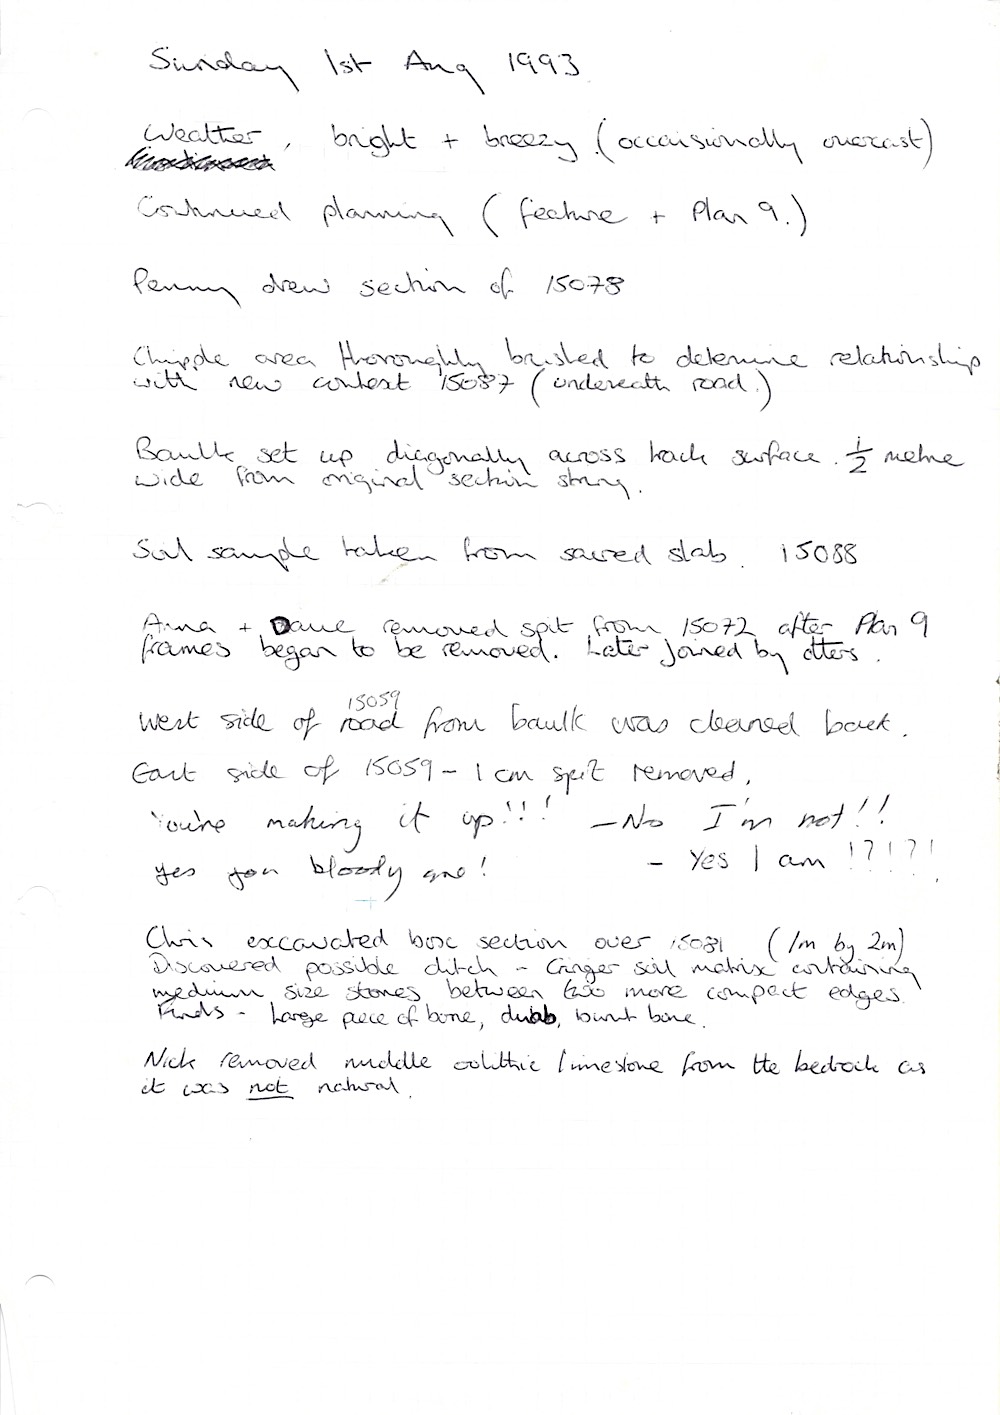 Sunday 1st Aug 1993
Weather, bright + breezy. (occaisionally overcast)
Continued planning (feature + Plan 9.)
Penny drew section of 15078
Chipple area thoroughly brushed to determine relationship
with new context 15087 (underneath road.)
Baulk set up diagonally across track surface. ½ metre
wide from original section string.
Soil sample taken from sacred slab. 15088
Anna + Dave removed spit from 15072 after Plan 9
frames began to be removed. Later joined by others.
15059
West side of road from baulk was cleaned back.
East side of 15059 - 1 cm spit removed.
You're making it up!!! - No I'm not!!
Yes you bloody are! - Yes I am !?!?!
Chris exccavated box section over 15081 (1m by 2m)
Discovered possible ditch - Ginger soil matrix containing
medium size stones between two more compact edges.
Finds - Large piece of bone, daub, burnt bone.
Nick removed middle oolithic limestone from the bedrock as
it was not natural.